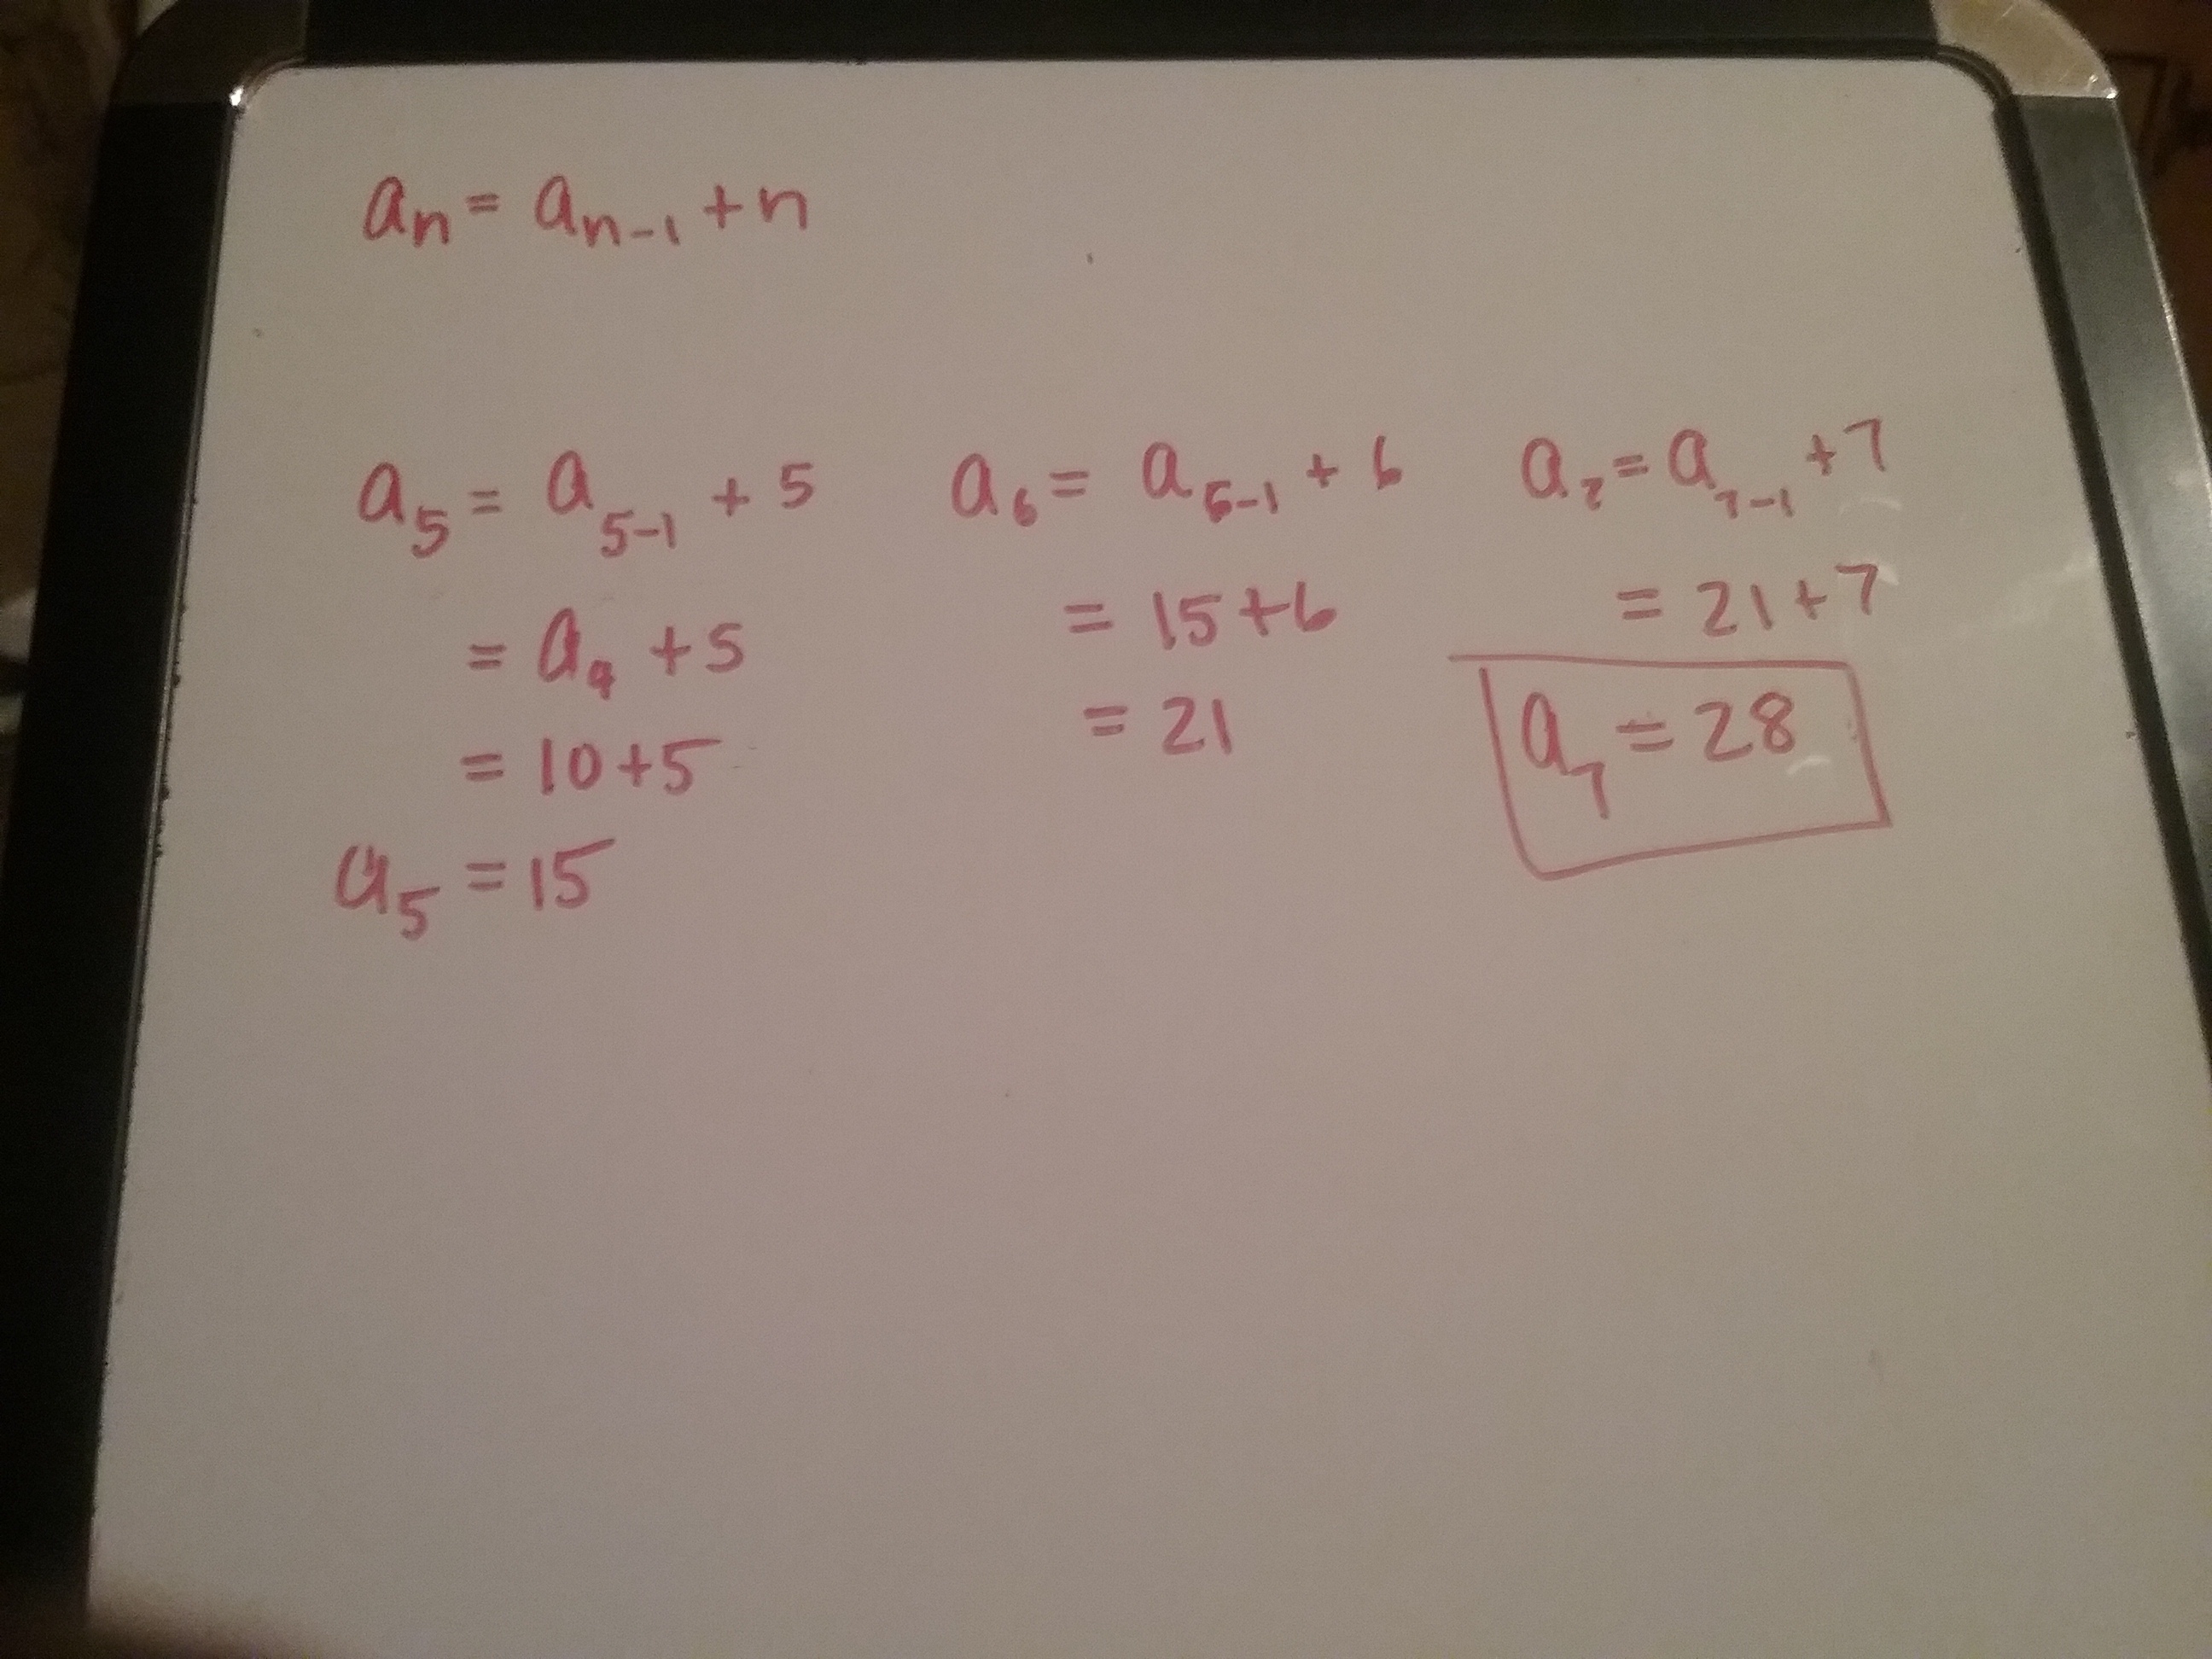 aₙ = aₙ₋₁ + n
a₅ = a₅₋₁ + 5
= a₄ + 5
= 10 + 5
a₅ = 15
a₆ = a₆₋₁ + 6
= 15 + 6
= 21
a₇ = a₇₋₁ + 7
= 21 + 7
a₇ = 28